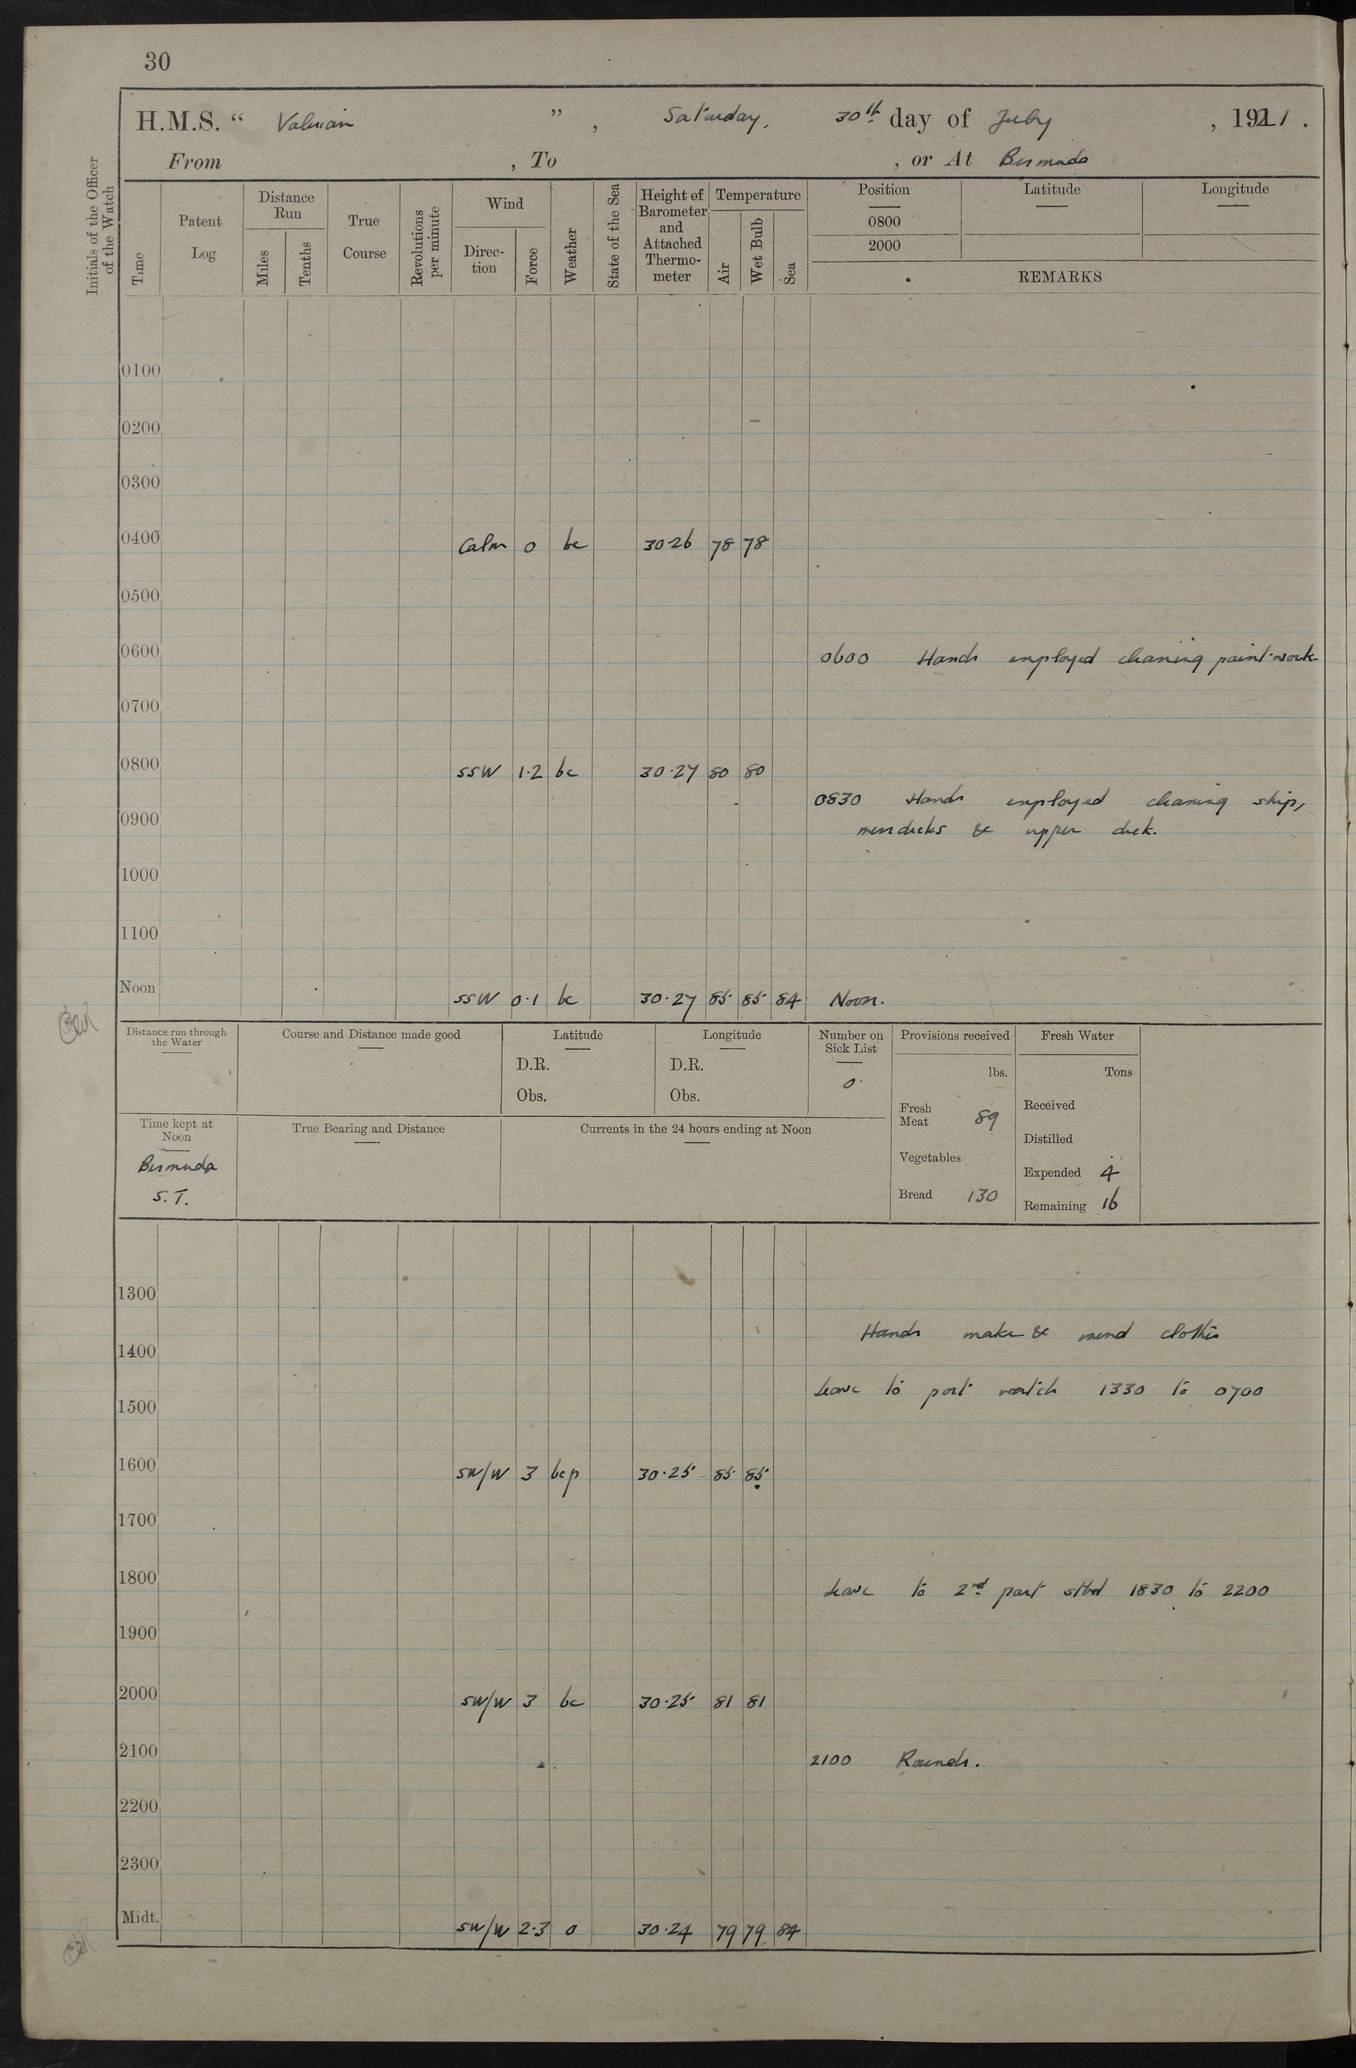 30
H.M.S. “ Valerian ” , Saturday, 30th day of July , 1921 .
From , To , or At Bermuda
Initials of the Officer of the Watch
Time
Patent Log
Distance Run
Miles
Tenths
True Course
Revolutions per minute
Wind
Direc-tion
Force
Weather
State of the Sea
Height of Barometer and Attached Thermo-meter
Temperature
Air
Wet Bulb
Sea
Position Latitude Longitude
0800
2000
REMARKS
0100
0200
0300
0400 Calm 0 bc 30·26 78 78
0500
0600 0600 Hands employed cleaning paint-work
0700
0800 SSW 1·2 bc 30·27 80 80
0830 Hands employed cleaning ship,
0900 messdecks & upper deck.
1000
1100
Noon SSW 0·1 bc 30·27 85 85 84 Noon.
Distance run through the Water
Course and Distance made good
Latitude
D.R.
Obs.
Longitude
D.R.
Obs.
Number on Sick List
0
Provisions received
lbs.
Fresh Meat 89
Vegetables
Bread 130
Fresh Water
Tons
Received
Distilled
Expended 4
Remaining 16
Time kept at Noon
Bermuda
S.T.
True Bearing and Distance
Currents in the 24 hours ending at Noon
1300
Hands make & mend clothes
1400
Leave to port watch 1330 to 0700
1500
1600 SW/W 3 bcp 30·25 85 85
1700
1800 Leave to 2nd part stbd 1830 to 2200
1900
2000 SW/W 3 bc 30·25 81 81
2100 2100 Rounds.
2200
2300
Midt. SW/W 2·3 0 30·24 79 79 84